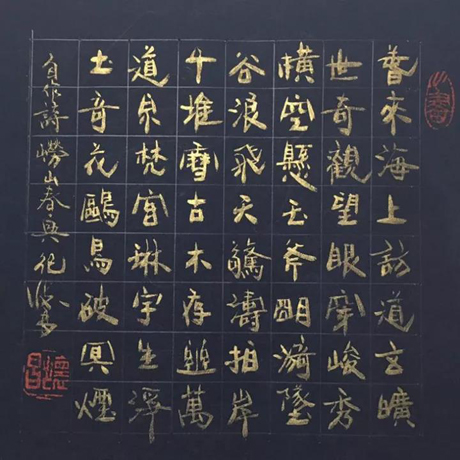 昔來海上訪道玄曠
世奇觀望眼穿峻秀
橫空懸玉斧明漪墜
谷浪飛天驚濤拍岸
千堆雪古木存幽萬
道泉梵宮琳宇生澤
土奇花鷗鳥破冥煙
自作詩嶗山春興